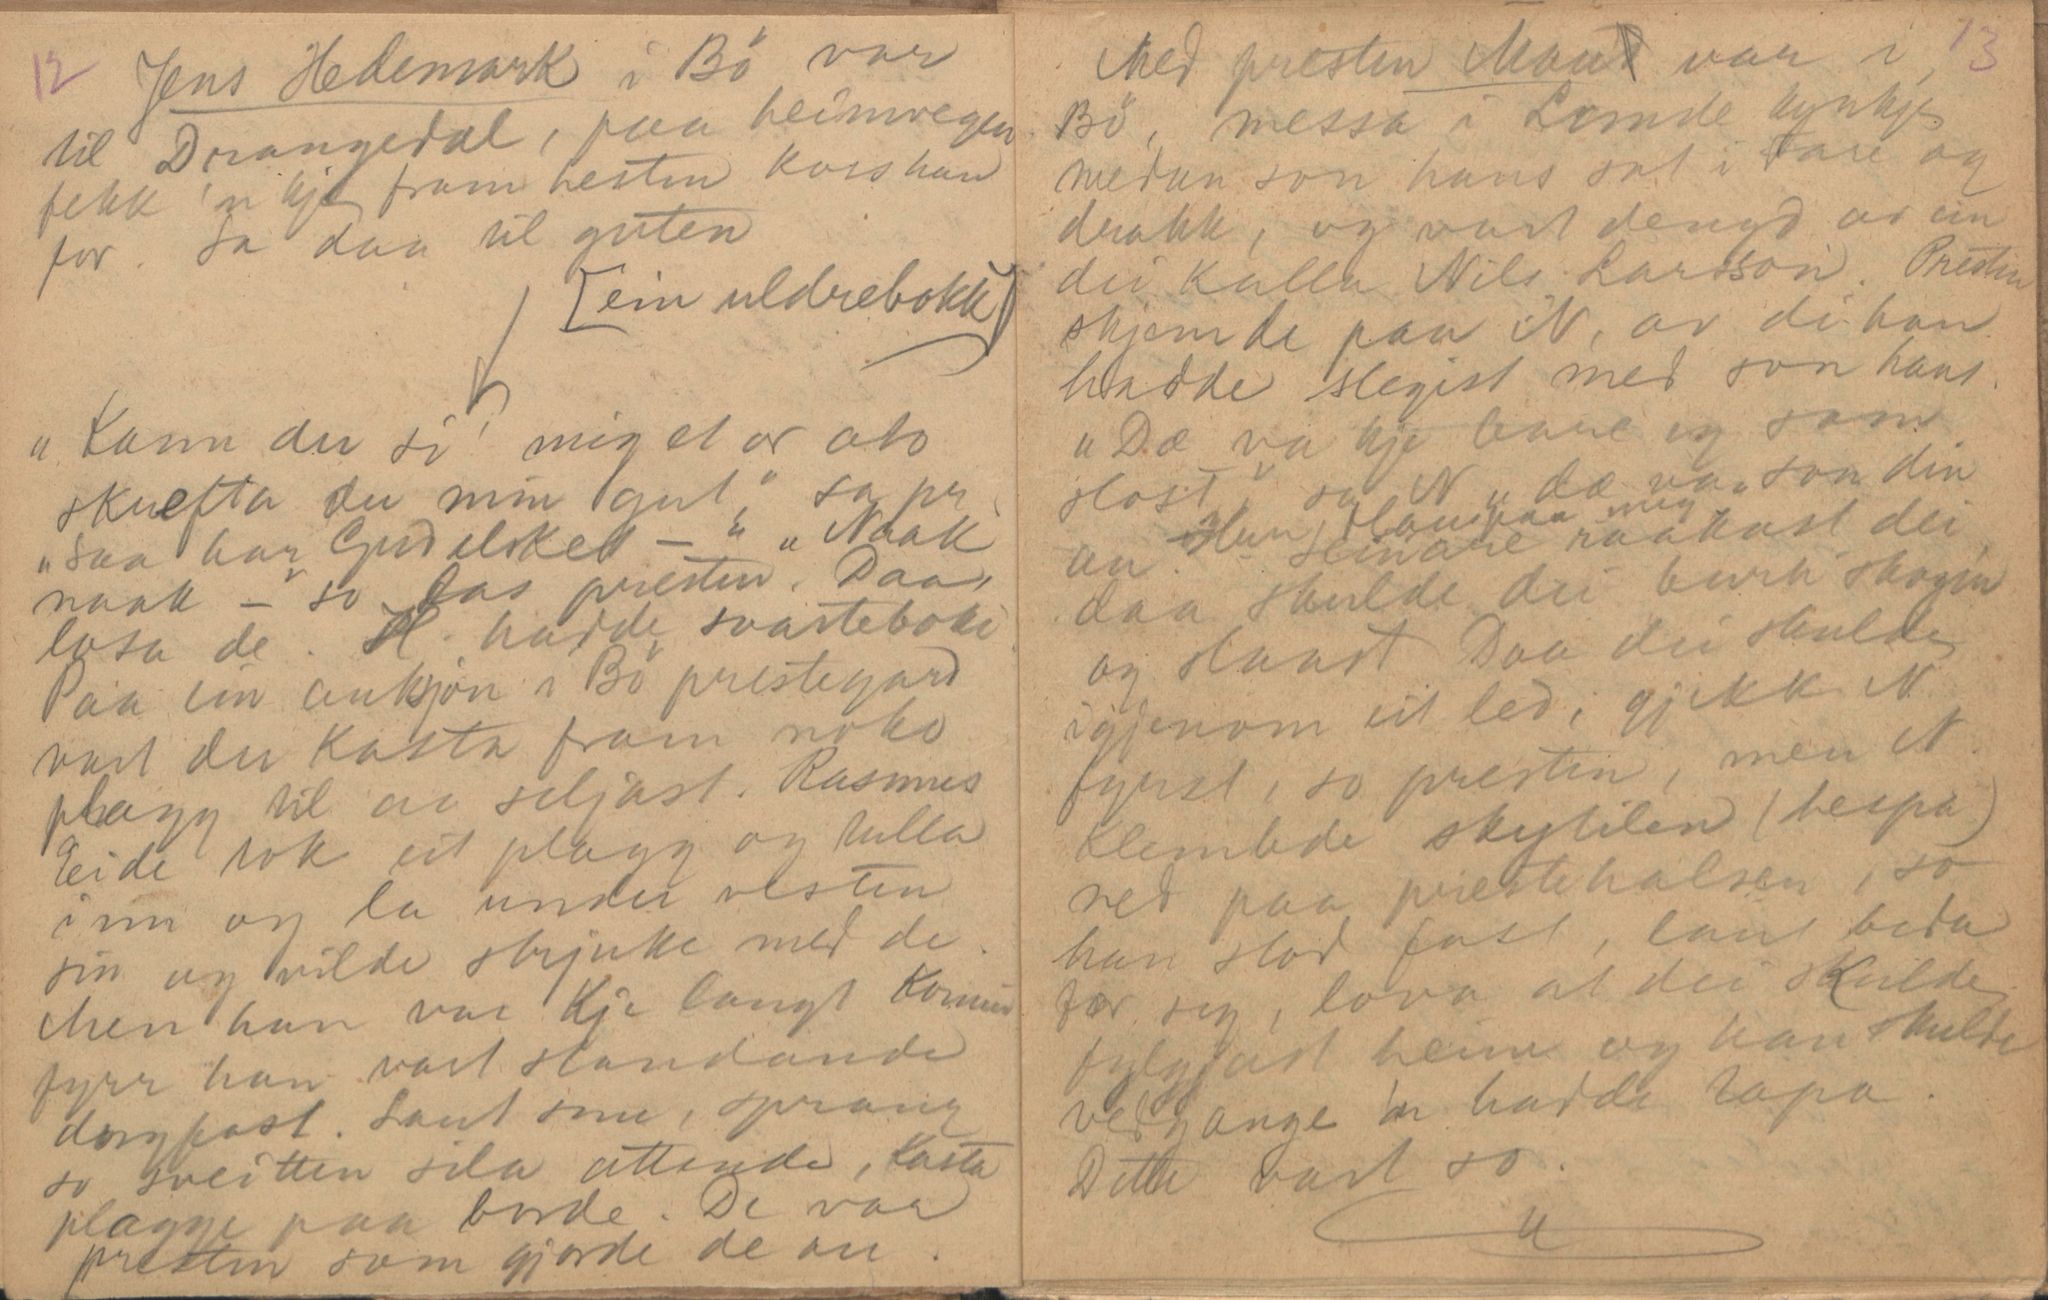 12
Jens Hedemark i Bö var
til Drangedal, paa heimvegen
fekk 'n kje fram hesten kors han
for. Sa daa til guten
[ein uldrebokk]
"Kann du si' mig et or ato
skrefta du min gut," sa pr.
"Saa har Gud elsket –" "Naak
naak –" so las presten. Daa
losa de. H. hadde svarteboki
Paa ein auksjon i Bö prestegard
vart der kasta fram noko
plagg til aa seljast. Rasmus
Eide tok eit plagg og tulla
i nn og la under vesten
sin og vilde strjuke med de.
Men han var kje langt komin
fyrr han vart standande
dørgfast. Laut snu, sprang
so sveitten sila attende, kasta
plagge paa borde. De var
presten som gjorde de au.
13
Med presten Maul var i
Bö, messa i Lunde kyrkje
medan son hans sat i Fare og
drakk, og vart dengd av ein
dei kalla Nils Larsson. Presten
skjemde paa N, av di han
hadde slegist med son hans.
"Dæ va kje bare eg som
slost", sa N "dæ va son din
au. Han slo paa meg"
Seinare raakast dei,
daa skulde dei burti skogin
og slaast Daa dei skulde
igjenom eit led, gjekk N.
fyrst, so presten, men N.
klemde skytilen (hespa)
ned paa prestehalsen, so
han stod fast, laut beda
for seg, lova at dei skulde
fylgjast heim og han skulde
vedgange 'n hadde tapa.
Dette vart so.